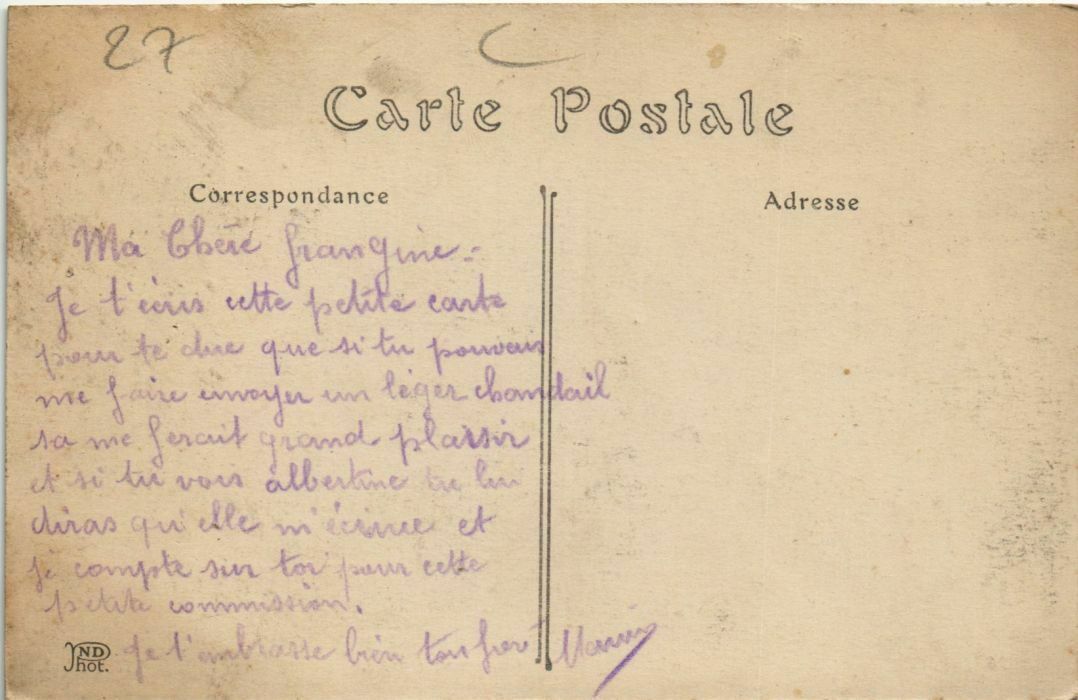 27
Carte Postale
Correspondance
Adresse
Ma Chère frangine.-
Je t'écris cette petite carte
pour te dire que si tu pouvais
me faire envoyer un léger chandail
sa me ferait grand plaisir
et si tu vois albertine tu lui
diras qu'elle m'écrive et
je compte sur toi pour cette
petite commission.
Je t'embrasse bien ton frère
ND Phot.